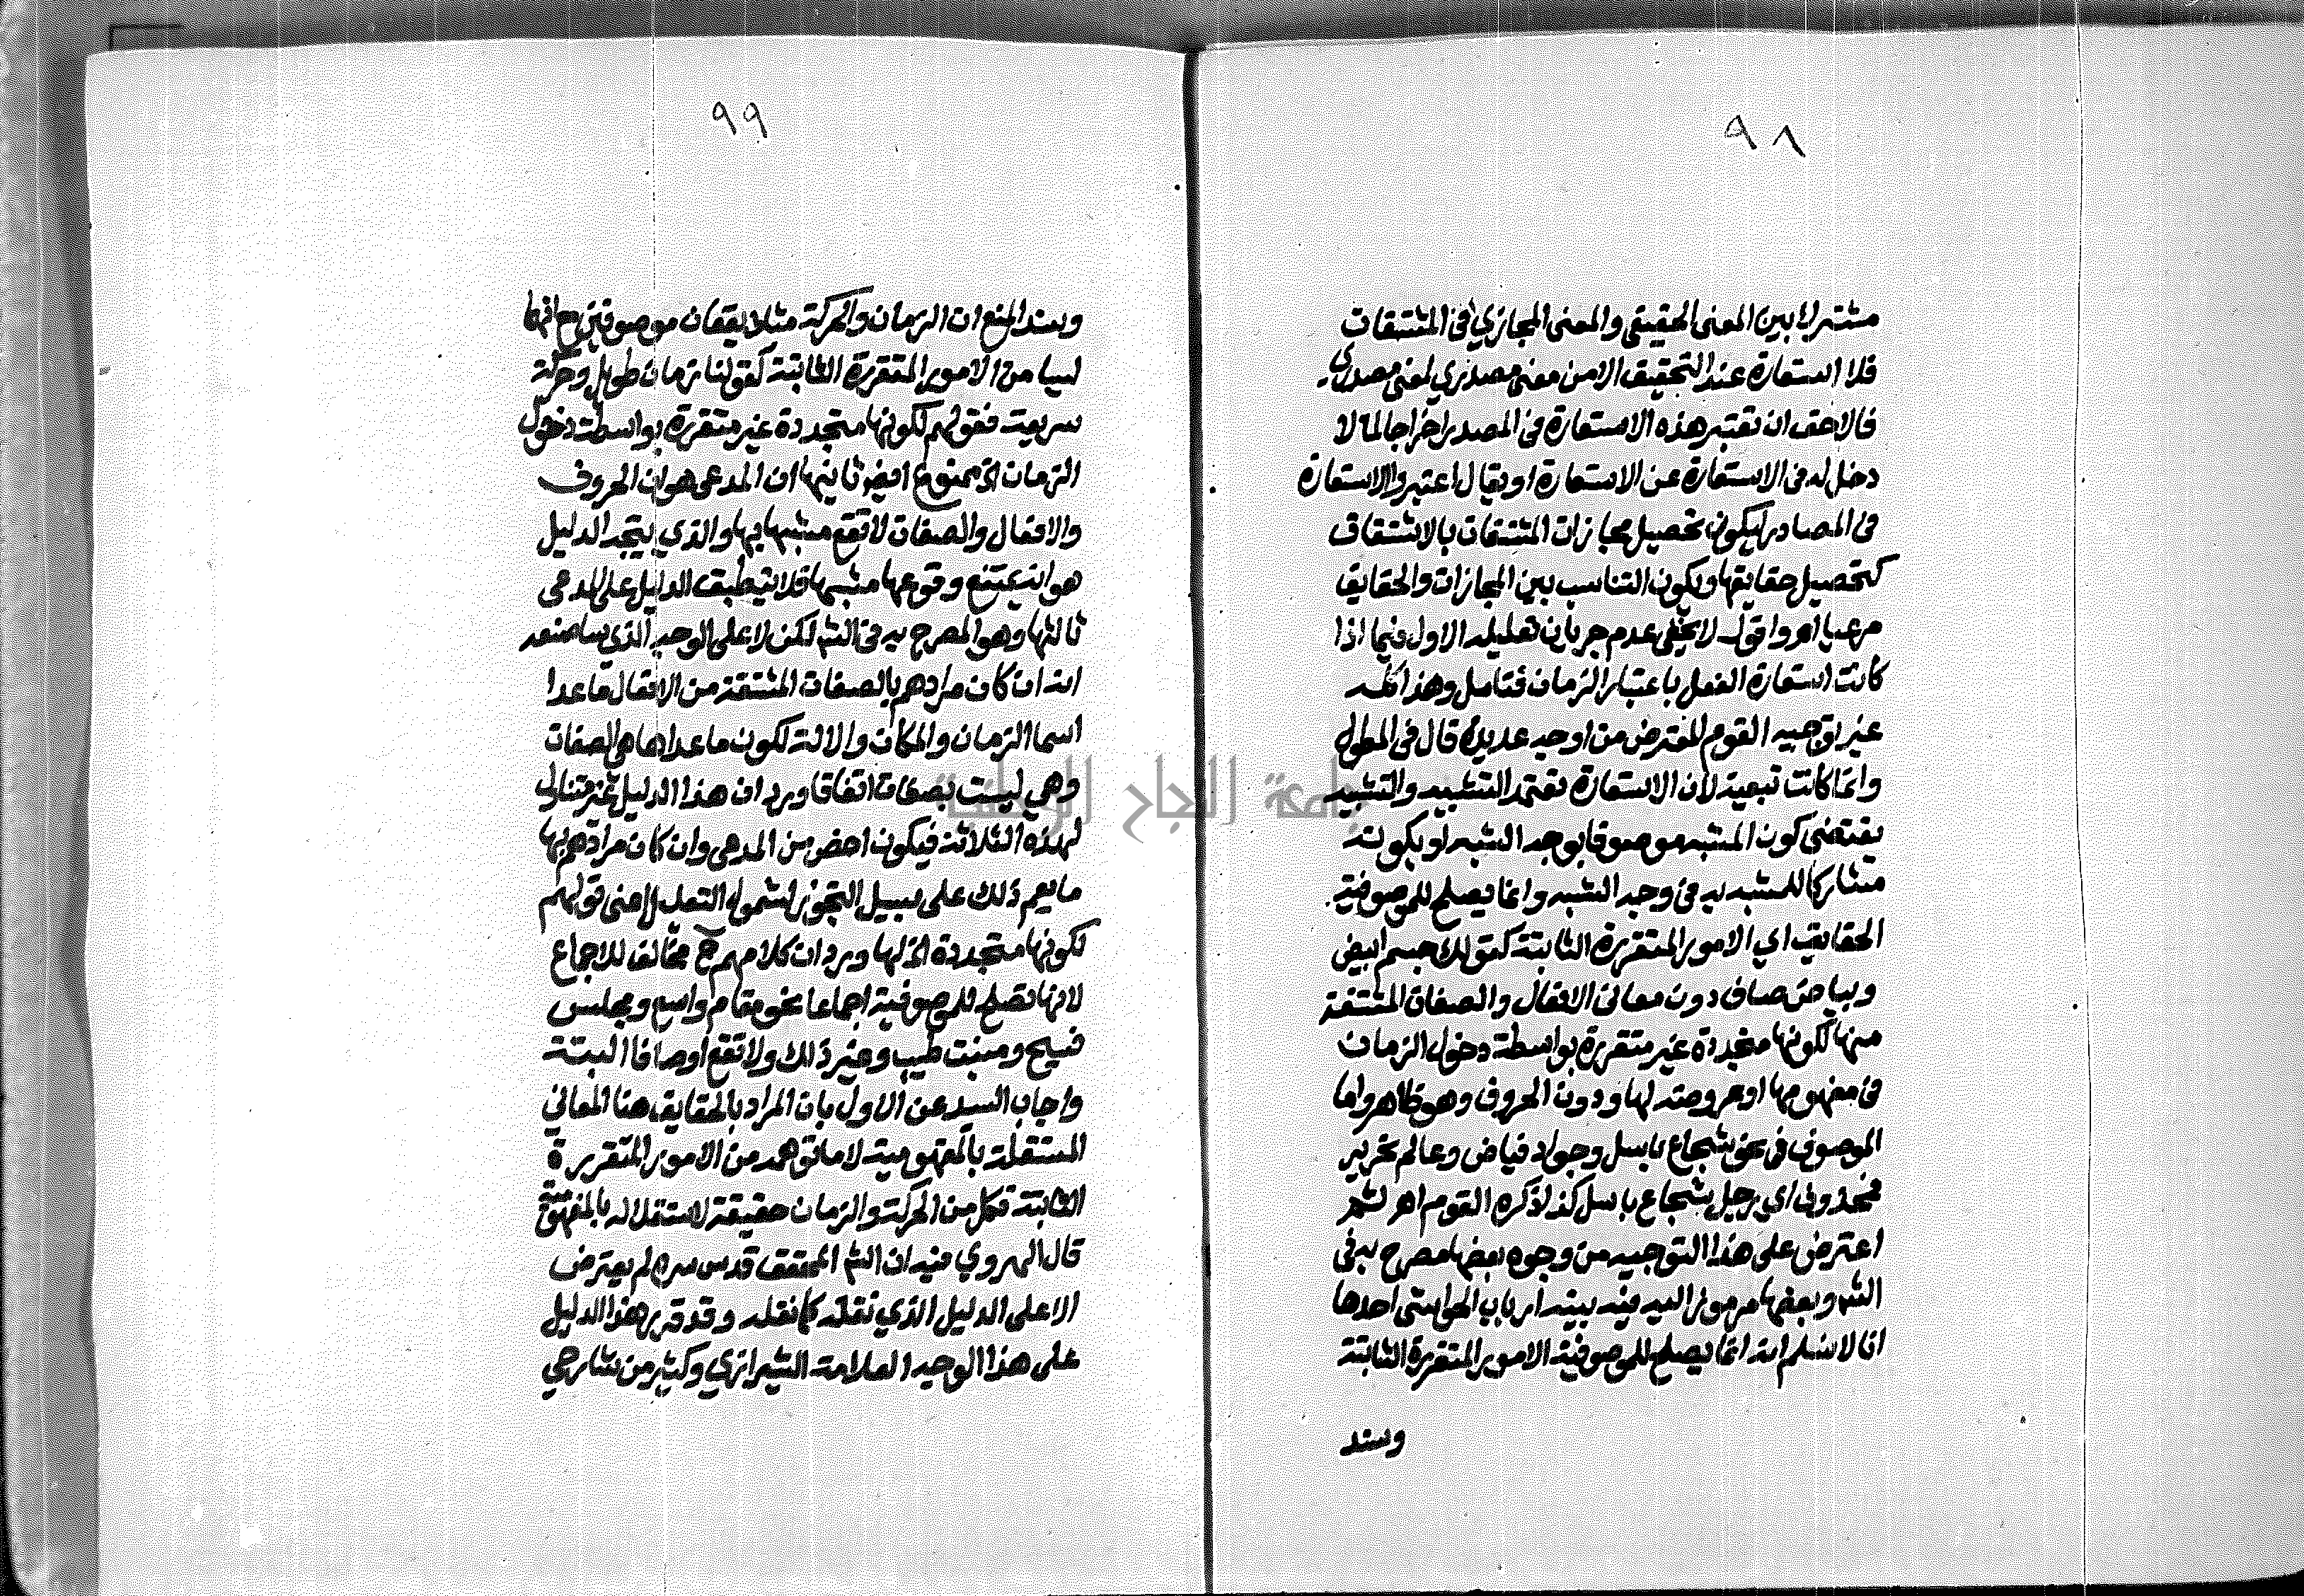 ٩٨
مشتركا بين المعنى الحقيقي والمعنى المجازي في المشتقات
فلا استعارة عند التحقيق الا من معنى مصدري لمعنى مصدري
فالاحق ان تعتبر هذه الاستعارة في المصدر اخراجا لما لا
دخل له في الاستعارة عن الاستعارة او يقال اعتبروا الاستعارة
في المصادر ليكون تحصيل مجازات المشتقات بالاشتقاق
كتحصيل حقايقها ويكون التناسب بين المجازات والحقايق
مرعيا اهر واقول لا يخفى عدم جريان تعليله الاول فيما اذا
كانت استعارة الفعل باعتبار الزمان فتامل وهذا كله
غير توجيه القوم المعترض من اوجه عديدة قال في المطول
وانما كانت تبعية لان الاستعارة تعتمد التشبيه والتشبيه
يقتضى كون المشبه موصوفا بوجه الشبه او بكونه
مشاركا للمشبه به في وجه الشبه وانما يصلح للموصوفية
الحقايق اي الامور المتقررة الثابتة كقولك جسم ابيض
وبياض صاف دون معانى الافعال والصفات المشتقة
منها لكونها متجددة غير متقررة بواسطة دخول الزمان
في مفهومها او عروضه لها ودون الحروف وهو ظاهر واما
الموصوف في نحو شجاع باسل وجواد فياض وعالم نحرير
فمحذوف اي رجل شجاع باسل كذا ذكره القوم اهر ثم
اعترض على هذا التوجيه من وجوه بعضها مصرح به في
الشر وبعضها مرموز اليه فيه بينه ارباب الحواشى احدها
انا لا نسلم انه انما يصلح للموصوفية الامور المتقررة الثابتة
وسند
٩٩
وسند المنع ان الزمان والحركة مثلا يقعان موصوفين مع انهما
ليسا من الامور المتقررة الثابتة كقولنا زمان طويل وحركة
سريعت فقولهم لكونها متجددة غير متقررة بواسطة دخول
الزمان الخ ممنوع ايض ثانيها ان المدعى هو ان الحروف
والافعال والصفات لا تقع مشبها بها والذي ينتجه الدليل
هو انه يمتنع وقوعها مشبها فلا ينطبق الدليل على المدعى
ثالثها وهو المصرح به في الشر لكن لا على الوجه الذي ساصنعه
انه ان كان مرادهم بالصفات المشتقة من الافعال ماعدا
اسما الزمان والمكان والالة لكون ماعداها هي الصفات
وهي ليست بصفات اتفاقا ورد ان هذا الدليل غير متناول
لهذه الثلاثة فيكون اخص من المدعى وان كان مرادهم بها
ما يعم ذلك على سبيل التجوز لشمول التعليل اعنى قولهم
لكونها متجددة الخ لها ورد ان كلامهم ح مخالف للاجماع
لانها تصلح للموصوفية اجماعا نحو مقام واسع ومجلس
فسيح ومنبت طيب وغير ذلك ولا تقع اوصافا البتة
واجاب السيد عن الاول بان المراد بالحقايق هنا المعاني
المستقلة بالمفهومية لا ما توهمه من الامور المتقررة
الثابتة فكل من الحركة والزمان حقيقة لاستقلاله بالمفهومية
قال الهروي فيه ان الشر المحقق قدس سره لم يعترض
الا على الدليل الذي نقله كما نقله وقد قرر هذا الدليل
على هذا الوجه العلامة الشيرازي وكثير من شارحي
جامعة النجاح الوطنية